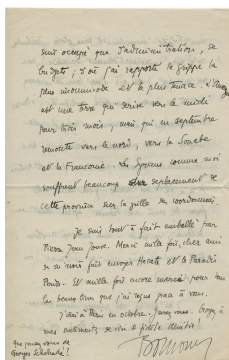 suis occupé que d'administration, de
budgets ; d'où j'ai rapporté la grippe la
plus incommode et la plus tenace.
est une terre qui dérive vers le midi
pour trois mois, mais qui en septembre
remonte vers le nord, vers la Souabe
et la Franconie. Les comme moi
souffrent beaucoup déplacement de
cette province sur la grille des coordonnées.
Je suis tout à fait emballé par
Pierre Jean Jouve. Merci mille fois, cher ami
de m'avoir fait envoyer Hécate et le Paradis
Perdu. Et mille fois encore merci pour tous
les beaux livres que j'ai reçus par à vous.
J'irai à Paris en octobre. Croyez à
mes sentiments de vive et fidèle amitié.
que pensez-vous de
Georges Schehadé ?